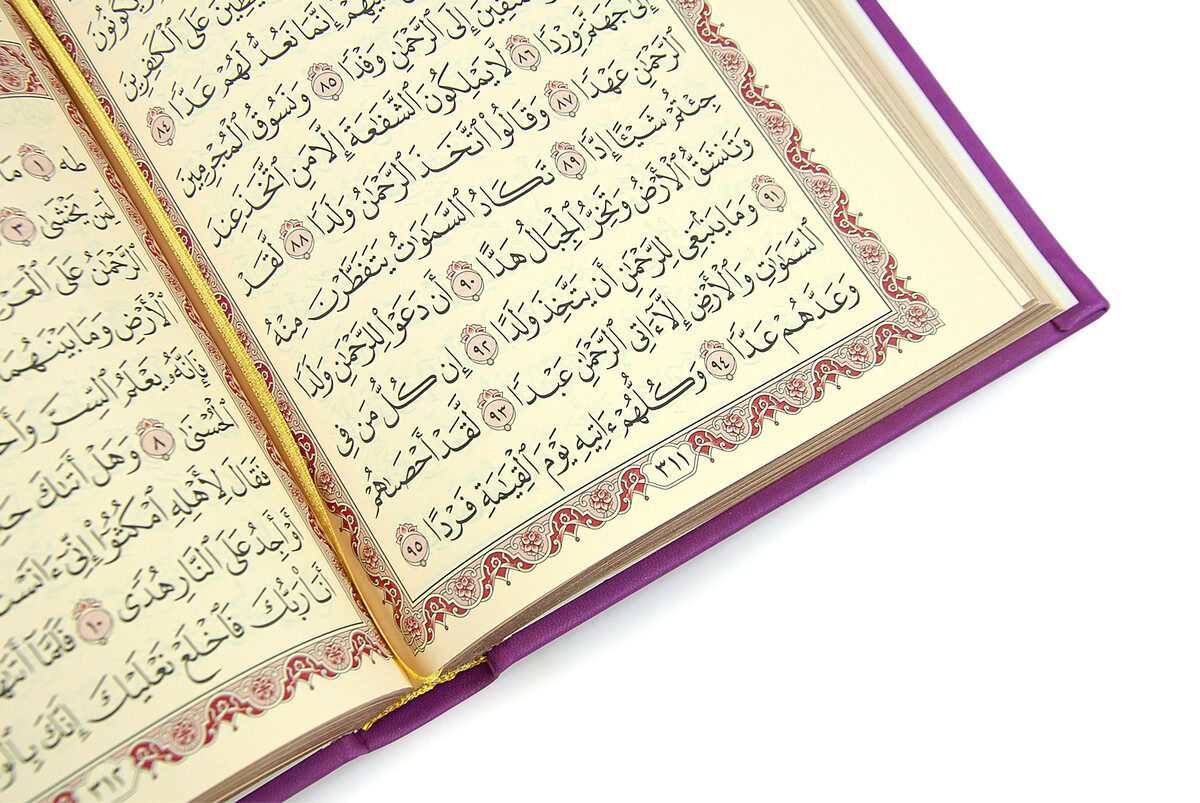 عَلَى ٱلْكَٰفِرِينَ
إِنَّمَا نَعُدُّ لَهُمْ عَدًّا ٨٤
إِلَى ٱلرَّحْمَٰنِ وَفْدًا ٨٥ وَنَسُوقُ ٱلْمُجْرِمِينَ
إِلَىٰ جَهَنَّمَ وِرْدًا ٨٦ لَّا يَمْلِكُونَ ٱلشَّفَٰعَةَ إِلَّا مَنِ ٱتَّخَذَ عِندَ
ٱلرَّحْمَٰنِ عَهْدًا ٨٧ وَقَالُوا۟ ٱتَّخَذَ ٱلرَّحْمَٰنُ وَلَدًا ٨٨ لَّقَدْ
جِئْتُمْ شَيْـًٔا إِدًّا ٨٩ تَكَادُ ٱلسَّمَٰوَٰتُ يَتَفَطَّرْنَ مِنْهُ
وَتَنشَقُّ ٱلْأَرْضُ وَتَخِرُّ ٱلْجِبَالُ هَدًّا ٩٠ أَن دَعَوْا۟ لِلرَّحْمَٰنِ وَلَدًا
٩١ وَمَا يَنۢبَغِى لِلرَّحْمَٰنِ أَن يَتَّخِذَ وَلَدًا ٩٢ إِن كُلُّ مَن فِى
ٱلسَّمَٰوَٰتِ وَٱلْأَرْضِ إِلَّآ ءَاتِى ٱلرَّحْمَٰنِ عَبْدًا ٩٣ لَّقَدْ أَحْصَىٰهُمْ
وَعَدَّهُمْ عَدًّا ٩٤ وَكُلُّهُمْ ءَاتِيهِ يَوْمَ ٱلْقِيَٰمَةِ فَرْدًا ٩٥
٣١١
طه ١ مَآ
يَخْشَىٰ ٣
ٱلرَّحْمَٰنُ عَلَى
ٱلْأَرْضِ وَمَا بَيْنَهُمَا
فَإِنَّهُۥ يَعْلَمُ ٱلسِّرَّ
ٱلْحُسْنَىٰ ٨ وَهَلْ أَتَىٰكَ
فَقَالَ لِأَهْلِهِ ٱمْكُثُوٓا۟ إِنِّىٓ
أَوْ أَجِدُ عَلَى ٱلنَّارِ هُدًى ١٠ فَلَمَّآ
أَنَا۠ رَبُّكَ فَٱخْلَعْ نَعْلَيْكَ إِنَّكَ
٣١٢